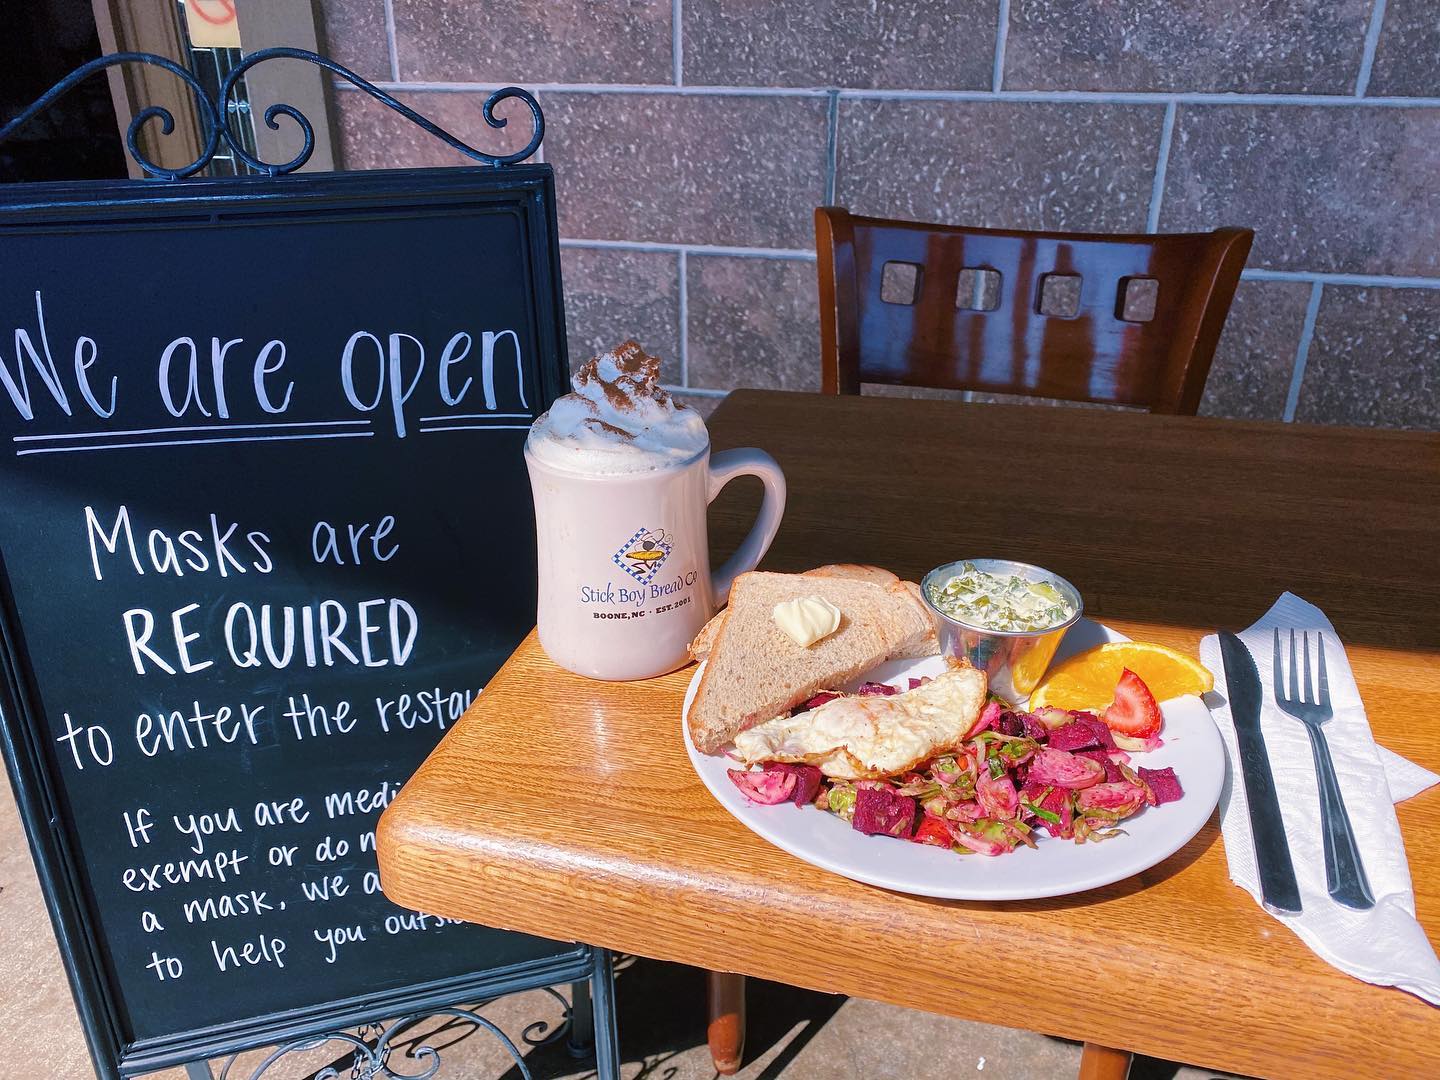 We are open
Masks are
REQUIRED
to enter the
If you are
exempt or do
a mask, we
to help you
Stick Boy Bread Co
BOONE, NC · EST. 2001